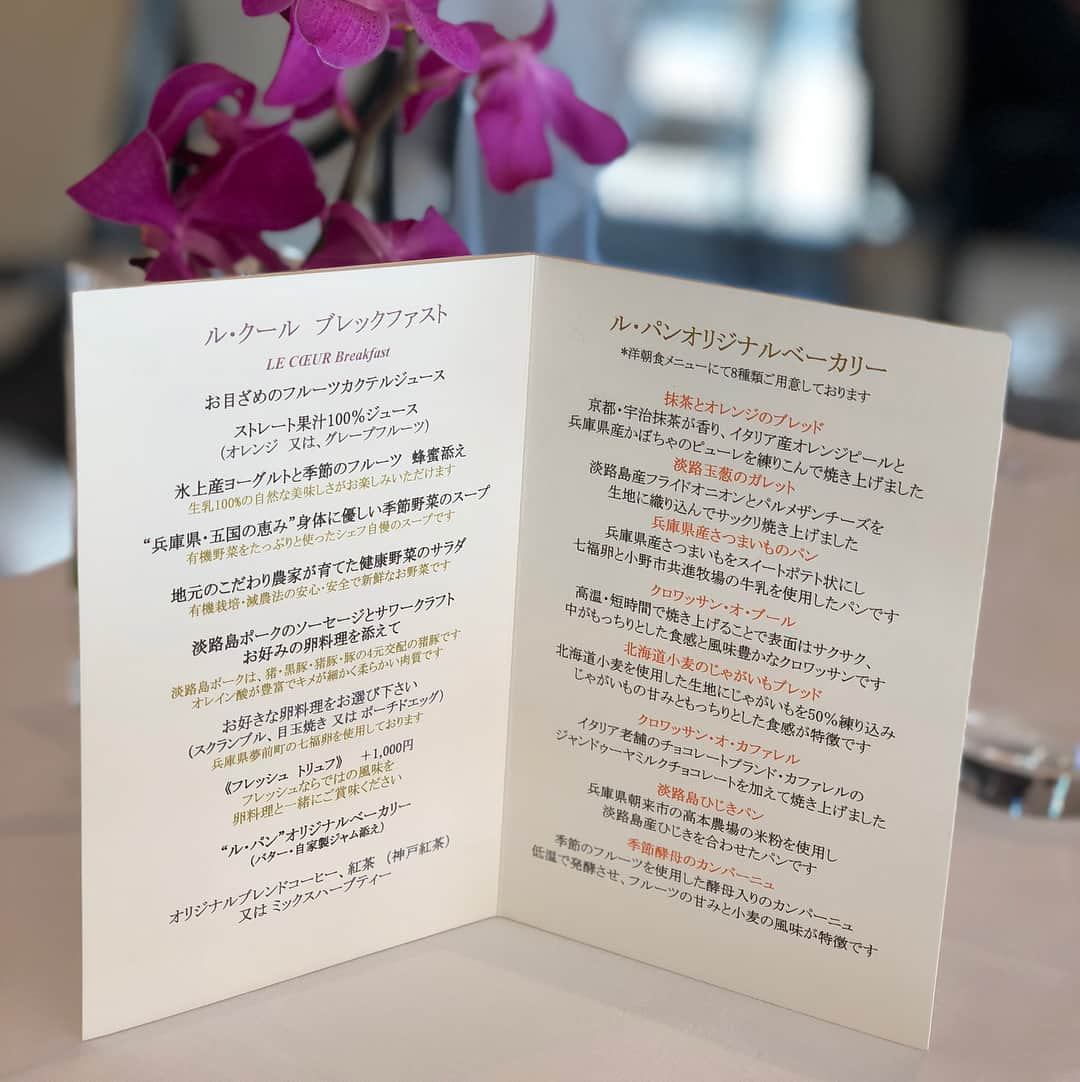 ル・クール ブレックファスト
LE CŒUR Breakfast
お目ざめのフルーツカクテルジュース
ストレート果汁100%ジュース
(オレンジ 又は、グレープフルーツ)
氷上産ヨーグルトと季節のフルーツ 蜂蜜添え
生乳100%の自然な美味しさがお楽しみいただけます
“兵庫県・五国の恵み”身体に優しい季節野菜のスープ
有機野菜をたっぷりと使ったシェフ自慢のスープです
地元のこだわり農家が育てた健康野菜のサラダ
有機栽培・減農法の安心・安全で新鮮なお野菜です
淡路島ポークのソーセージとサワークラフト
お好みの卵料理を添えて
淡路島ポークは、猪・黒豚・猪豚・豚の4元交配の猪豚です
オレイン酸が豊富でキメが細かく柔らかい肉質です
お好きな卵料理をお選び下さい
(スクランブル、目玉焼き 又は ポーチドエッグ)
兵庫県夢前町の七福卵を使用しております
《フレッシュ トリュフ》 +1,000円
フレッシュならではの風味を
卵料理と一緒にご賞味ください
“ル・パン”オリジナルベーカリー
(バター・自家製ジャム添え)
オリジナルブレンドコーヒー、紅茶 (神戸紅茶)
又は ミックスハーブティー
ル・パンオリジナルベーカリー
*洋朝食メニューにて8種類ご用意しております
抹茶とオレンジのブレッド
京都・宇治抹茶が香り、イタリア産オレンジピールと
兵庫県産かぼちゃのピューレを練りこんで焼き上げました
淡路玉葱のガレット
淡路島産フライドオニオンとパルメザンチーズを
生地に織り込んでサックリ焼き上げました
兵庫県産さつまいものパン
兵庫県産さつまいもをスイートポテト状にし
七福卵と小野市共進牧場の牛乳を使用したパンです
クロワッサン・オ・ブール
高温・短時間で焼き上げることで表面はサクサク、
中がもっちりとした食感と風味豊かなクロワッサンです
北海道小麦のじゃがいもブレッド
北海道小麦を使用した生地にじゃがいもを50%練り込み
じゃがいもの甘みともっちりとした食感が特徴です
クロワッサン・オ・カファレル
イタリア老舗のチョコレートブランド・カファレルの
ジャンドゥーヤミルクチョコレートを加えて焼き上げました
淡路島ひじきパン
兵庫県朝来市の高本農場の米粉を使用し
淡路島産ひじきを合わせたパンです
季節酵母のカンパーニュ
季節のフルーツを使用した酵母入りのカンパーニュ
低温で発酵させ、フルーツの甘みと小麦の風味が特徴です